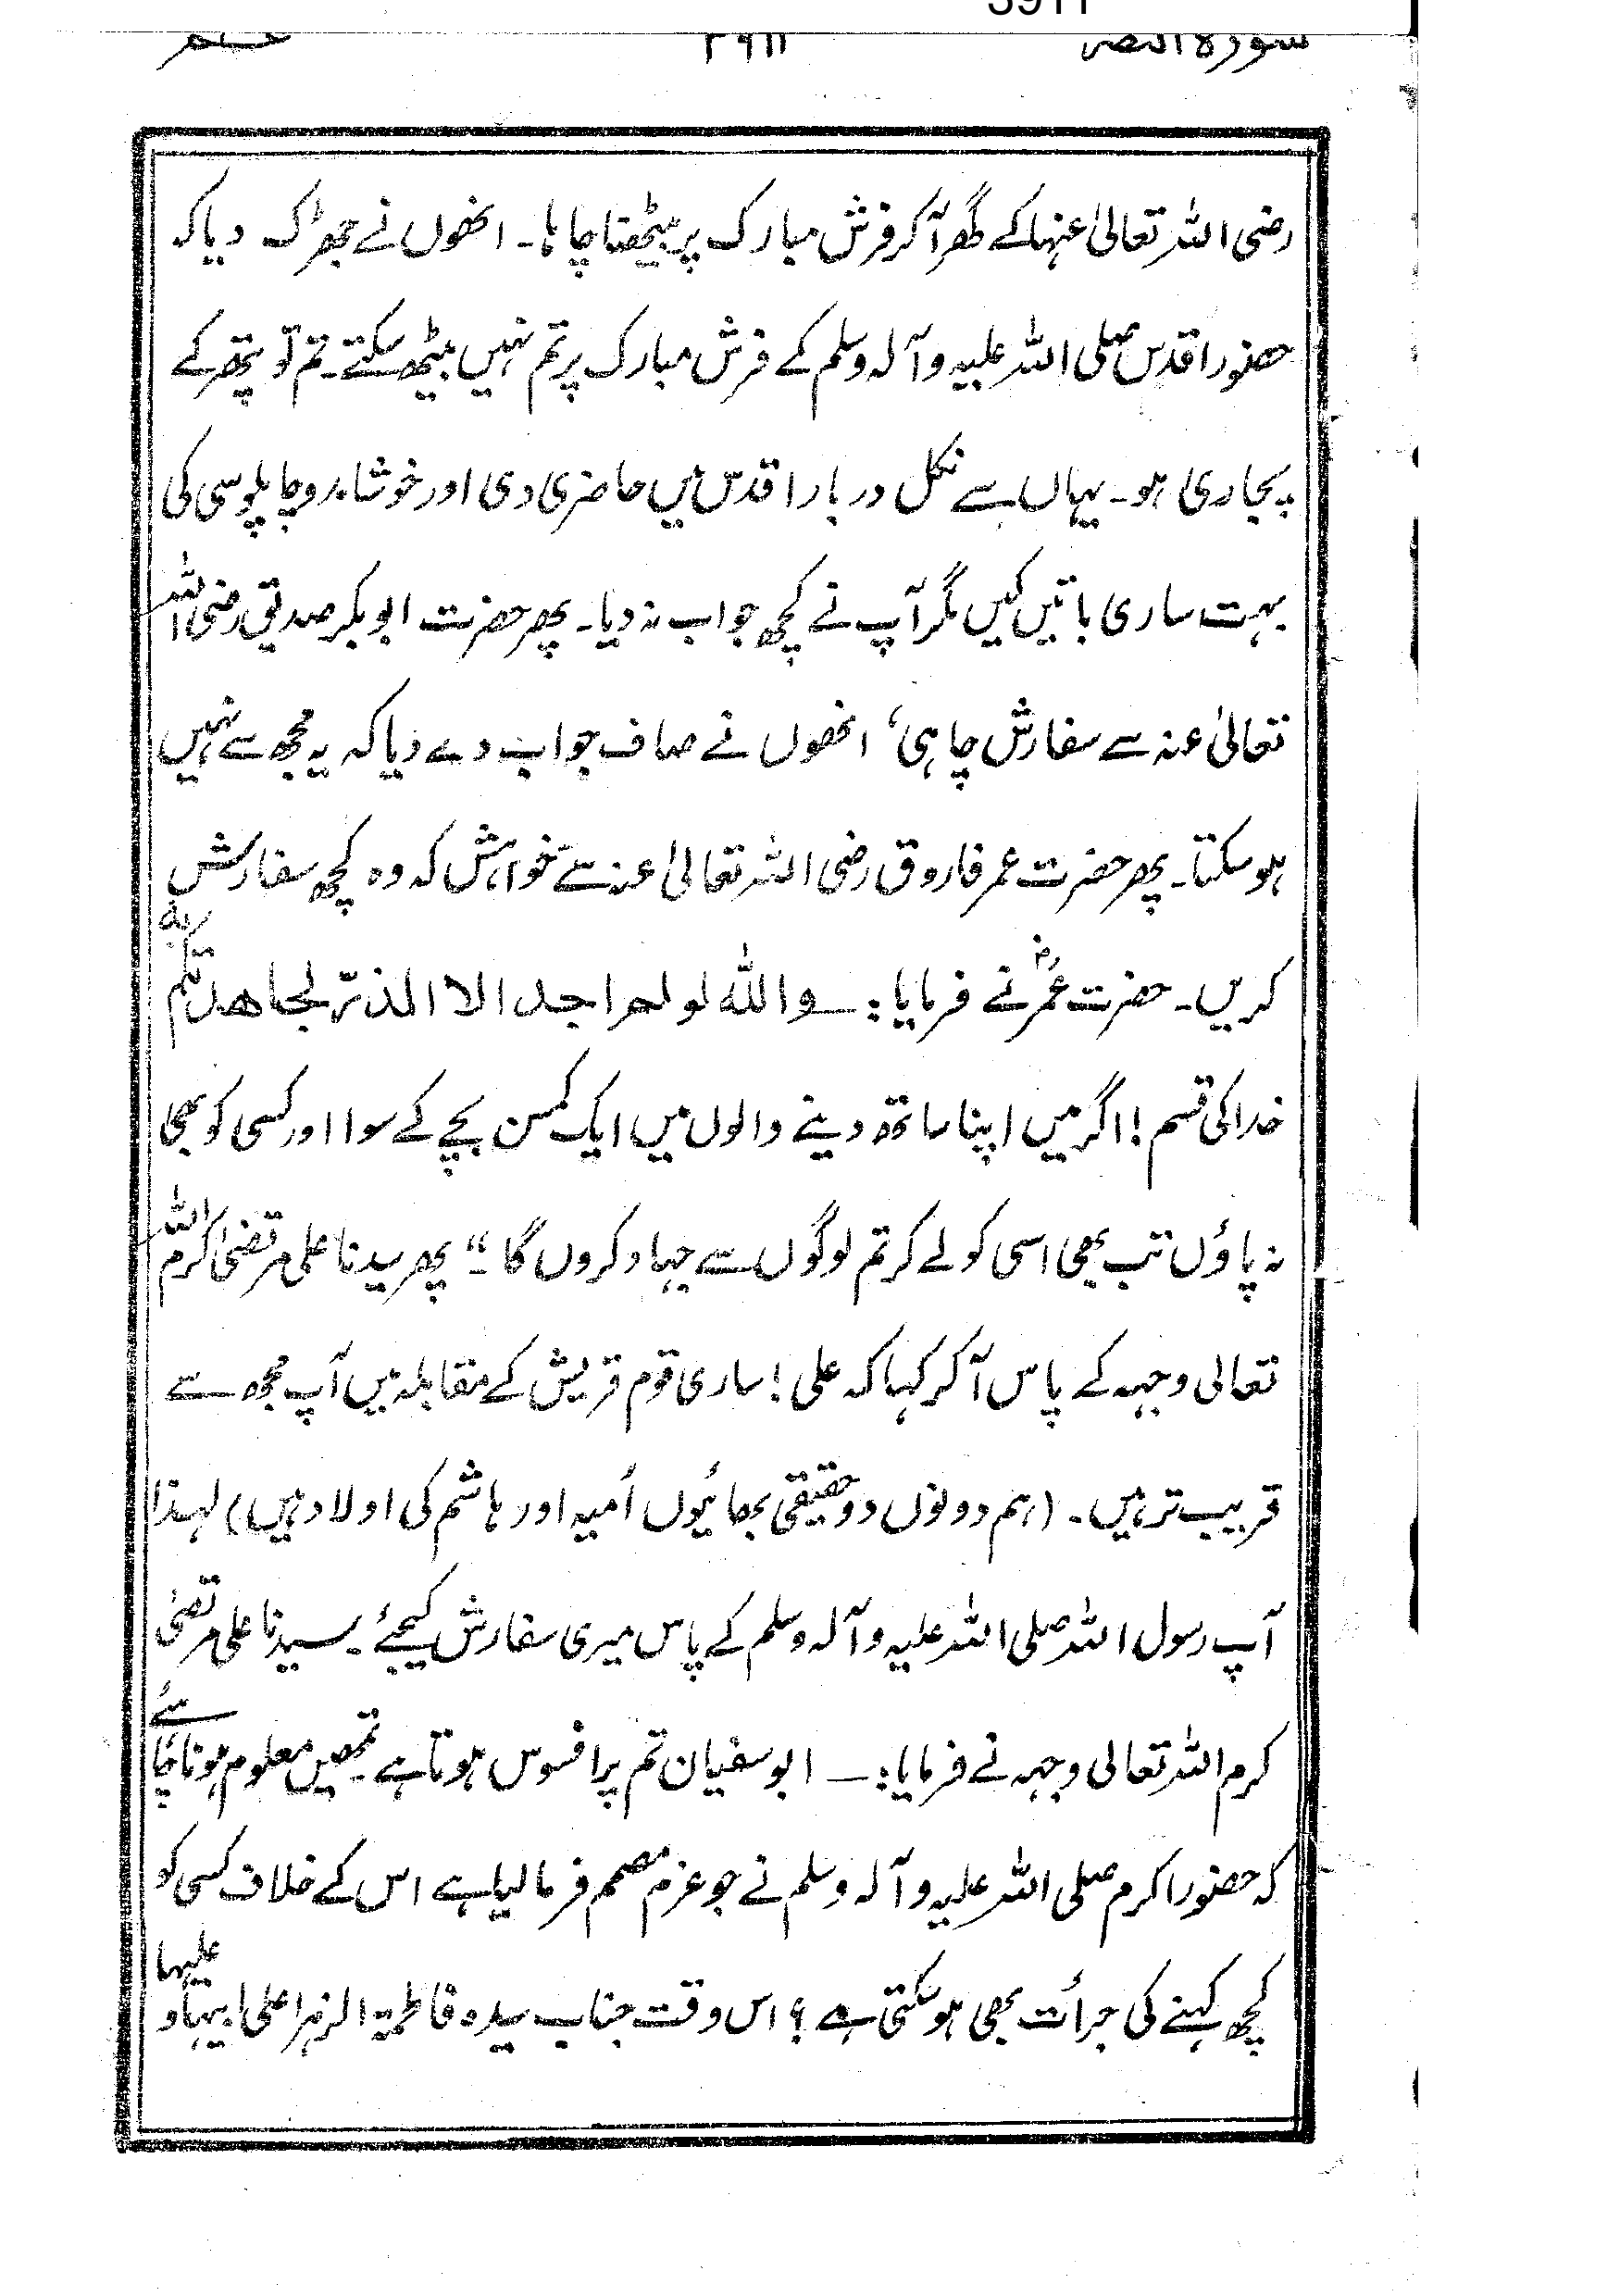 سورۃ النصر ۳۹۱۱ عم
رضی اللہ تعالیٰ عنہا کے گھر آ کر فرش مبارک پر بیٹھنا چاہا۔ انھوں نے جھڑک دیا کہ
حضور اقدس صلی اللہ علیہ و آلہ وسلم کے فرش مبارک پر تم نہیں بیٹھ سکتے۔ تم تو پتھر کے
پجاری ہو۔ یہاں سے نکل دربار اقدس میں حاضری دی اور خوشامد و چاپلوسی کی
بہت ساری باتیں کیں مگر آپ نے کچھ جواب نہ دیا۔ پھر حضرت ابوبکر صدیق رضی اللہ
تعالیٰ عنہ سے سفارش چاہی، انھوں نے صاف جواب دے دیا کہ یہ مجھ سے نہیں
ہو سکتا۔ پھر حضرت عمر فاروق رضی اللہ تعالیٰ عنہ سے خواہش کہ وہ کچھ سفارش
کریں۔ حضرت عمرؓ نے فرمایا:۔ واللہ لو لم اجد الا الذرّ لجاھدتکم بہ
خدا کی قسم! اگر میں اپنا ساتھ دینے والوں میں ایک کمسن بچے کے سوا اور کسی کو بھی
نہ پاؤں تب بھی اسی کو لے کر تم لوگوں سے جہاد کروں گا۔“ پھر سیدنا علی مرتضیٰ کرم اللہ
تعالی وجہہ کے پاس آ کر کہا کہ علی! ساری قوم قریش کے مقابلہ میں آپ مجھ سے
قریب تر ہیں۔ (ہم دونوں دو حقیقی بھائیوں اُمیہ اور ہاشم کی اولاد ہیں) لہذا
آپ رسول اللہ صلی اللہ علیہ و آلہ وسلم کے پاس میری سفارش کیجئے۔ سیدنا علی مرتضیٰ
کرم اللہ تعالی وجہہ نے فرمایا:۔ ابوسفیان تم پر افسوس ہوتا ہے۔ تمھیں معلوم ہونا چاہئے
کہ حضور اکرم صلی اللہ علیہ و آلہ وسلم نے جو عزم مصمم فرما لیا ہے اس کے خلاف کسی کو
کچھ کہنے کی جرأت بھی ہو سکتی ہے؟ اس وقت جناب سیدہ فاطمۃ الزہرا علی ابیہا و علیہا